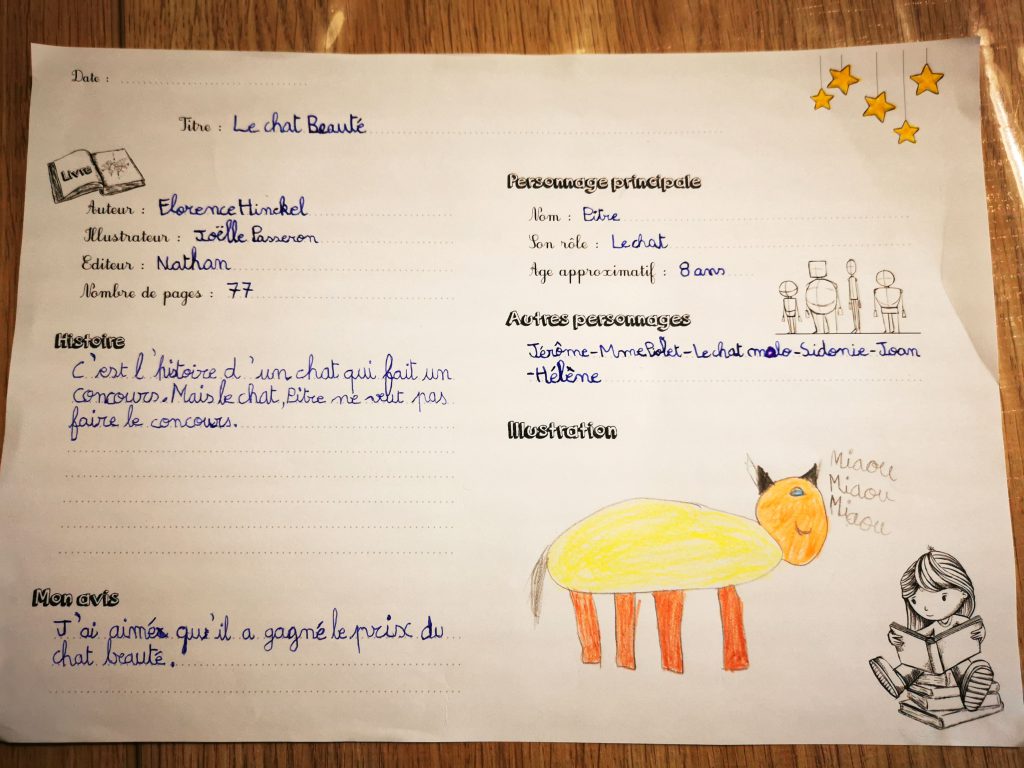 Date :
Titre : Le chat Beauté
Livre
Auteur : Florence Hinckel
Illustrateur : Joëlle Passeron
Editeur : Nathan
Nombre de pages : 77
Histoire
C'est l'histoire d'un chat qui fait un
concours. Mais le chat, Pitre ne veut pas
faire le concours.
Mon avis
J'ai aimér qu'il a gagné le prix du
chat beauté.
Personnage principale
Nom : Pitre
Son rôle : Le chat
Age approximatif : 8 ans
Autres personnages
Jérôme-Mme Bolet-Le chat malo-Sidonie-Joan
-Hélène
Illustration
Miaou
Miaou
Miaou